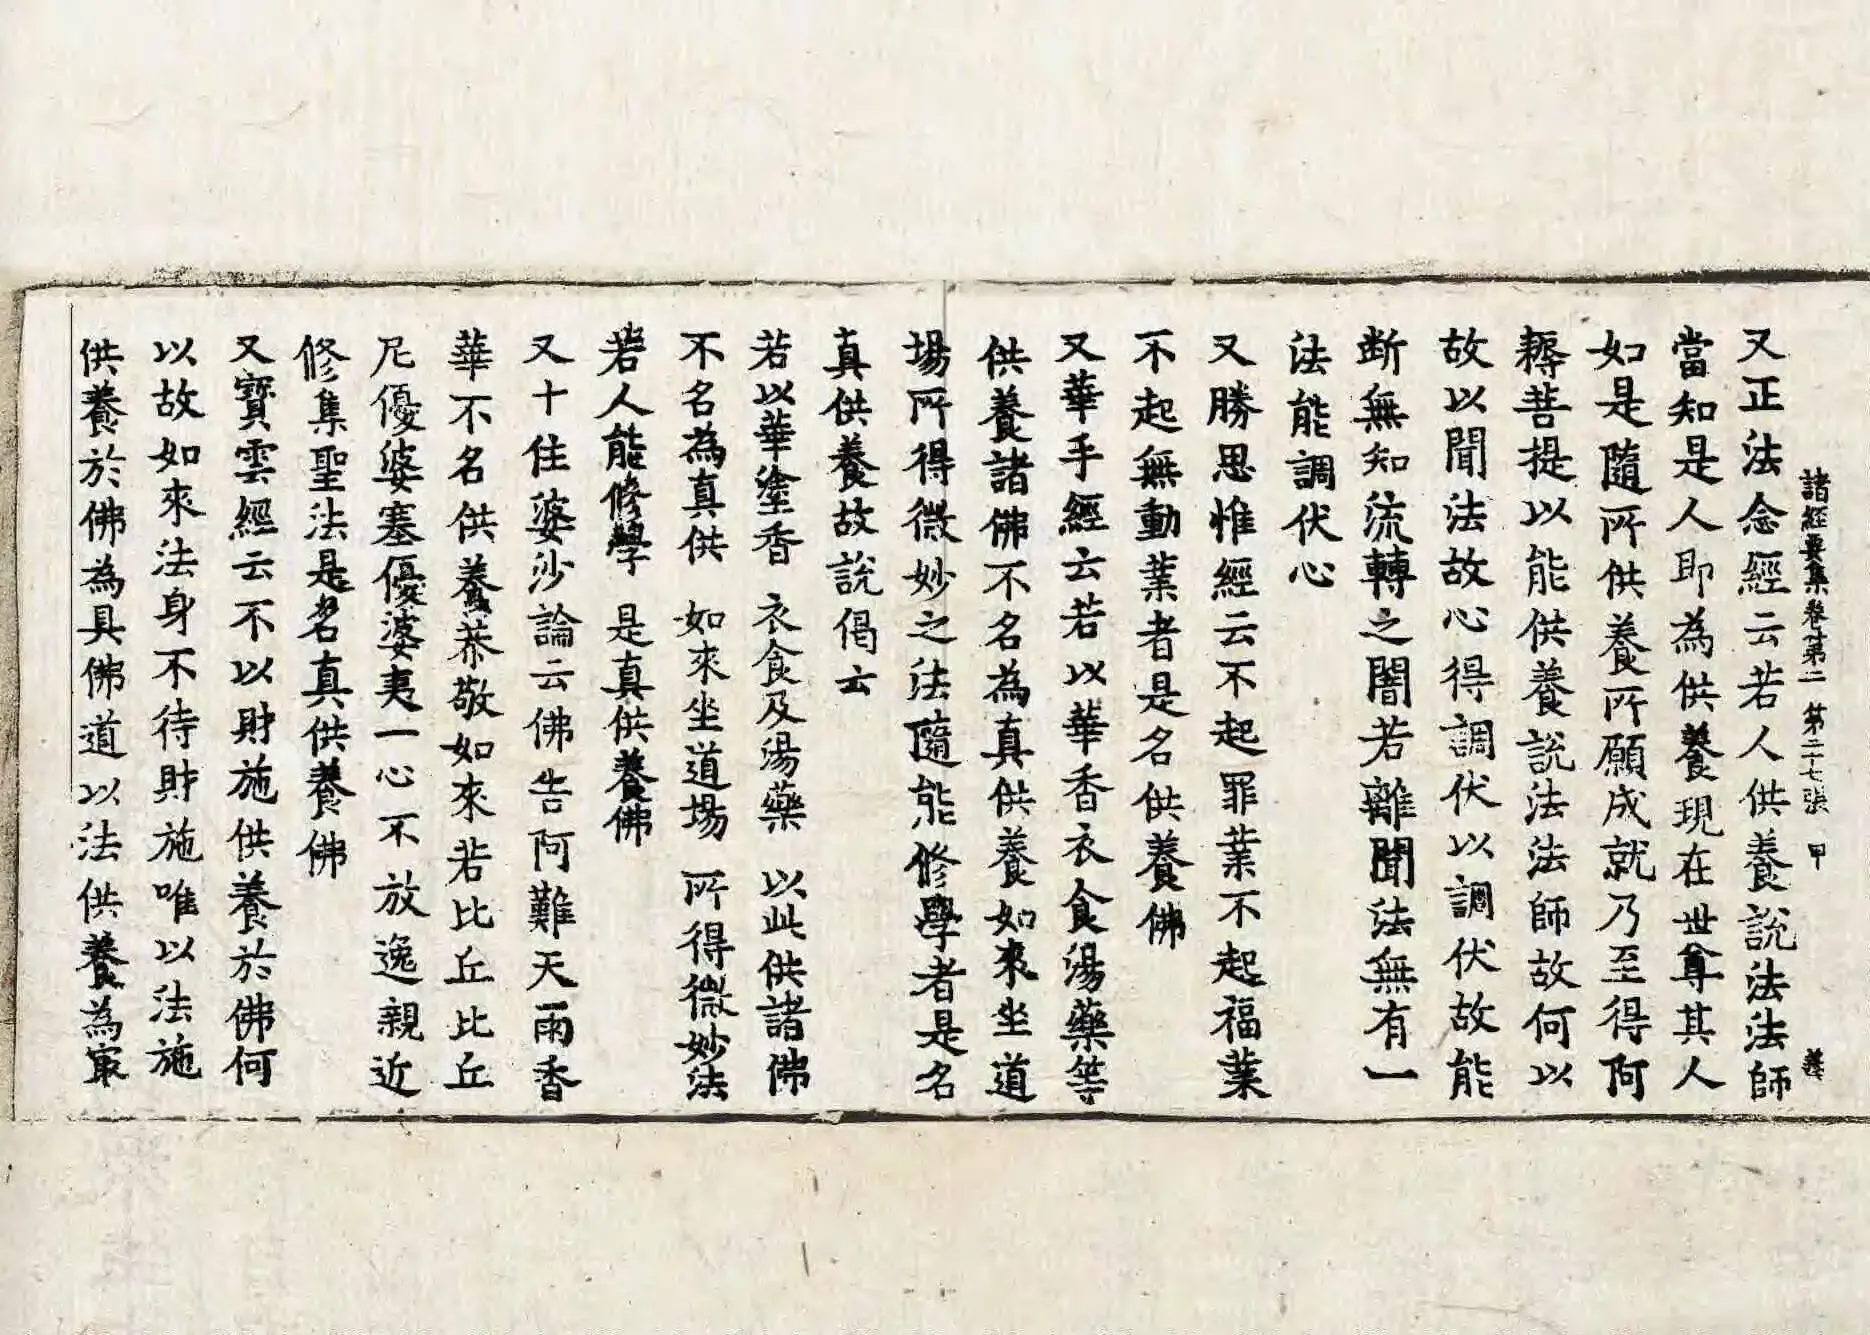 諸經要集卷第二 第二十七張 甲
又正法念經云若人供養說法法師
當知是人即為供養現在世尊其人
如是隨所供養所願成就乃至得阿
耨菩提以能供養說法法師故何以
故以聞法故心得調伏以調伏故能
断無知流轉之闇若離聞法無有一
法能調伏心
又勝思惟經云不起罪業不起福業
不起無動業者是名供養佛
又華手經云若以華香衣食湯藥等
供養諸佛不名為真供養如來坐道
場所得微妙之法隨能修學者是名
真供養故說偈云
若以華塗香 衣食及湯藥 以此供諸佛
不名為真供 如來坐道場 所得微妙法
若人能修學 是真供養佛
又十住婆沙論云佛告阿難天雨香
華不名供養恭敬如來若比丘比丘
尼優婆塞優婆夷一心不放逸親近
修集聖法是名真供養佛
又寶雲經云不以財施供養於佛何
以故如來法身不待財施唯以法施
供養於佛為具佛道以法供養為冣